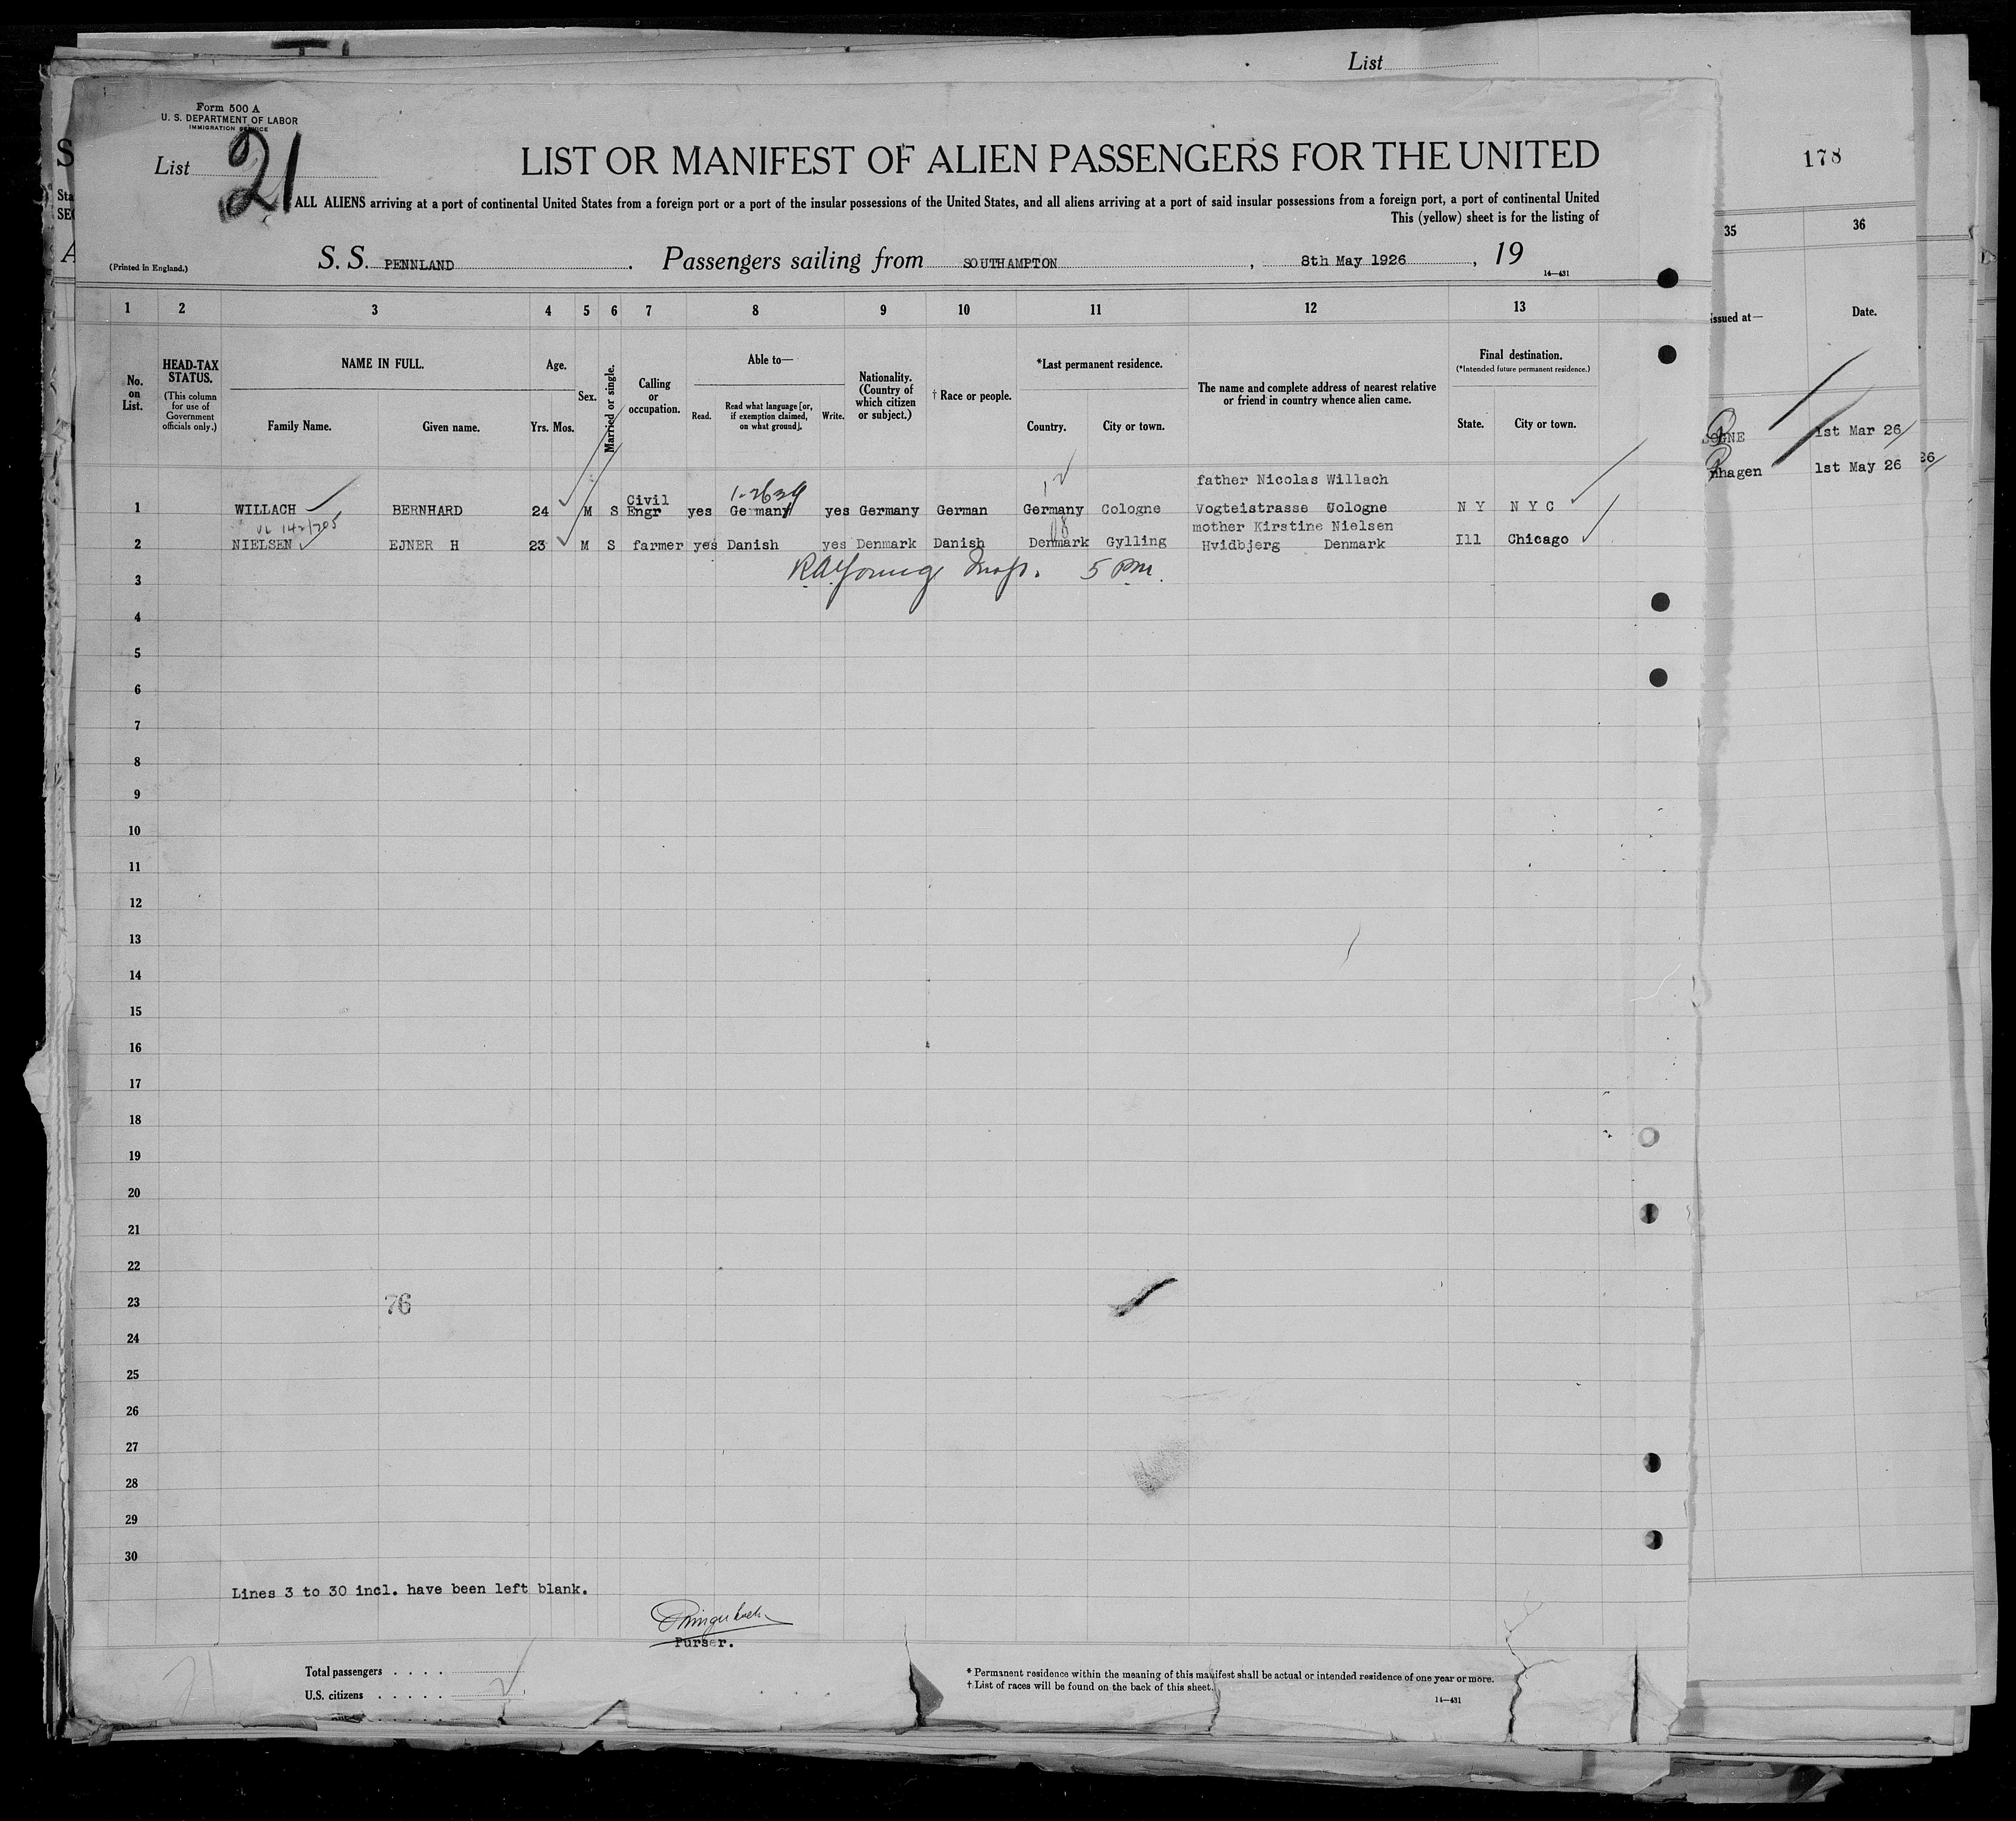 List
178
35 36
issued at— Date.
OGNE 1st Mar 26
nhagen 1st May 26 26
Form 500 A
U. S. DEPARTMENT OF LABOR
IMMIGRATION SERVICE
List 21
LIST OR MANIFEST OF ALIEN PASSENGERS FOR THE UNITED
ALL ALIENS arriving at a port of continental United States from a foreign port or a port of the insular possessions of the United States, and all aliens arriving at a port of said insular possessions from a foreign port, a port of continental United
This (yellow) sheet is for the listing of
(Printed in England.) S. S. PENNLAND. Passengers sailing from SOUTHAMPTON, 8th May 1926, 19
14—431
1 2 3 4 5 6 7 8 9 10 11 12 13
No. on List.
HEAD-TAX STATUS.
(This column for use of Government officials only.)
NAME IN FULL.
Family Name. Given name.
Age.
Yrs. Mos.
Sex.
Married or single.
Calling or occupation.
Able to—
Read. Read what language [or, if exemption claimed, on what ground]. Write.
Nationality. (Country of which citizen or subject.)
† Race or people.
*Last permanent residence.
Country. City or town.
The name and complete address of nearest relative or friend in country whence alien came.
Final destination.
(*Intended future permanent residence.)
State. City or town.
father Nicolas Willach
1 WILLACH BERNHARD 24 M S Civil Engr yes Germany yes Germany German Germany Cologne Vogteistrasse Cologne N Y N Y C
mother Kirstine Nielsen
2 NIELSEN EJNER H 23 M S farmer yes Danish yes Denmark Danish Denmark Gylling Hvidbjerg Denmark Ill Chicago
RA Young Insp. 5 PM.
3
4
5
6
7
8
9
10
11
12
13
14
15
16
17
18
19
20
21
22
23 76
24
25
26
27
28
29
30
Lines 3 to 30 incl. have been left blank.
Purser.
Total passengers . . . .
U.S. citizens . . . . .
* Permanent residence within the meaning of this manifest shall be actual or intended residence of one year or more.
† List of races will be found on the back of this sheet.
14—431